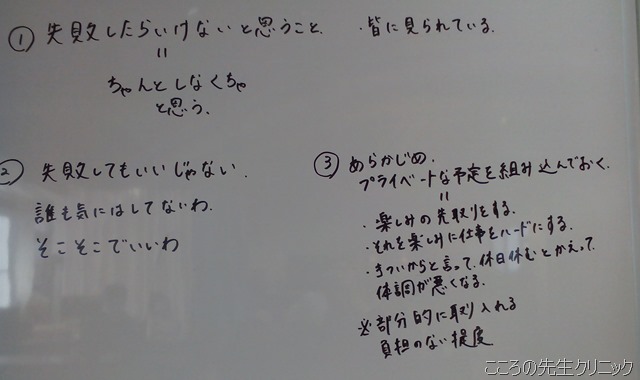 ① 失敗したらいけないと思うこと ・皆に見られている。
=
ちゃんとしなくちゃ
と思う。
② 失敗してもいいじゃない。
誰も気にはしてないわ。
そこそこでいいわ
③ あらかじめ、
プライベートな予定を組み込んでおく。
=
・楽しみの先取りをする。
・それを楽しみに仕事をハードにする。
・きついからと言って、休日休むとかえって
体調が悪くなる。
※部分的に取り入れる
負担のない程度
こころの先生クリニック